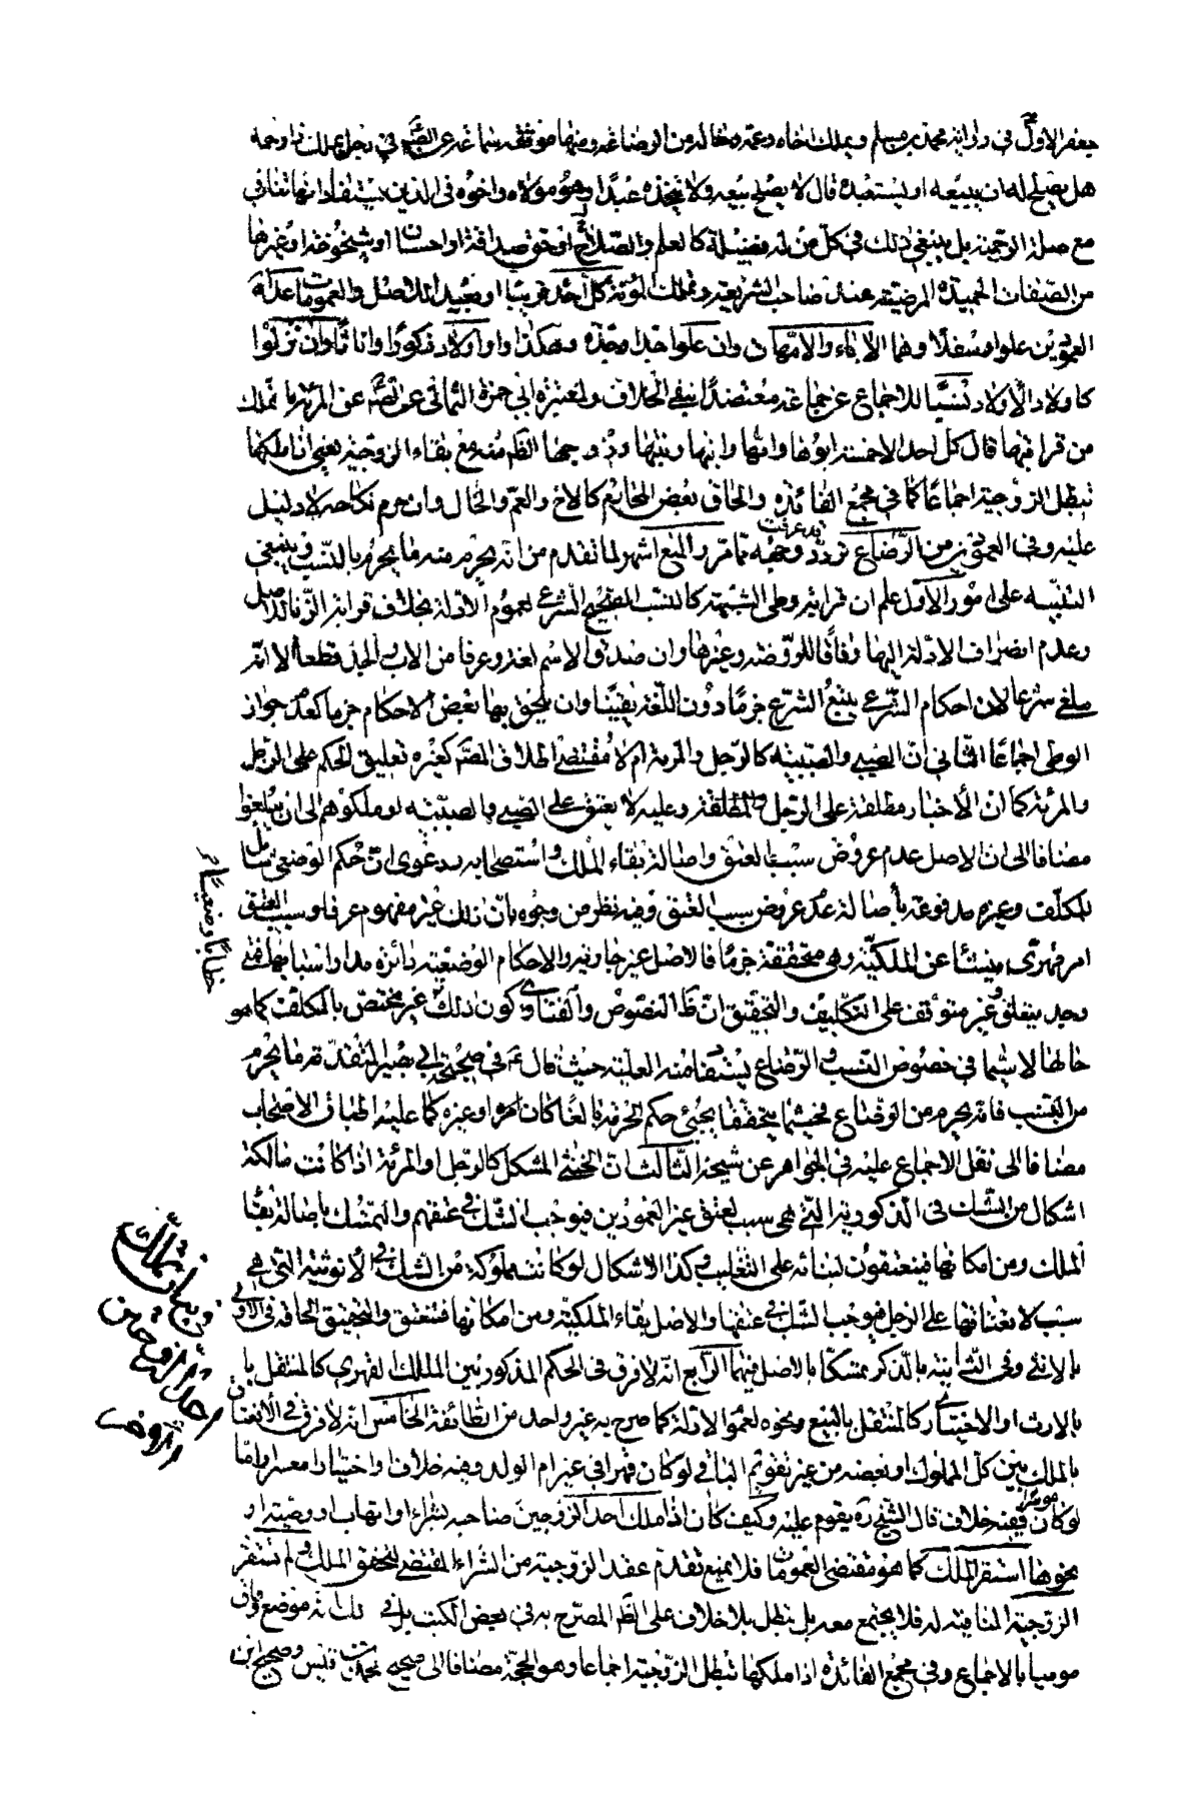 جعفر الاول في رواية محمد بن مسلم ويملك اخاه وعمه وخاله من الرضاعة ومنها موثقة سماعة عن الصم في رجل يملك ذا رحمه
هل يصلح له ان يبيعه او يستعبده قال لا يصلح بيعه ولا يتخذه عبدًا وهو مولاه واخوه في الذين
مع صلة الرحم بل ينبغي ذلك في كل من له فضيلة كالعلم والصلاح او حق صداقة او احسان او شيخوخة او غيرها
من الصفات الحميدة المرضية عند صاحب الشريعة وتملك المرئة كل احد قريبًا او بعيدا للاصل والعمومات عدا
العمودين علوا وسفلا وهما الآباء والامهات وان علوا جدا وجدة وهكذا والاولاد ذكورًا واناثًا وان نزلوا
كاولاد الاولاد نسبًا للاجماع عن جماعة معتضدًا بنفي الخلاف ولمعتبرة ابي حمزة الثمالي عن الصم عن المرئة ما تملك
من قرابتها قال كل احد الا خمسة ابوها وامها وابنها وبنتها وزوجها الظم منه مع بقاء الزوجية يعني اذا ملكها
تبطل الزوجية اجماعًا كما في مجمع الفائدة والحاق بعض المحارم كالاخ والعم والخال وان حرم نكاحه لا دليل
عليه وفي العمودين من الرضاع تردد وجهه قد عرفت مما مر والمنع اشهر لما تقدم من انه يحرم منه ما يحرم بالنسب وينبغي
التنبيه على امور الاول علم ان قرابة وطى الشبهة كالنسب الصحيح الشرعي لعموم الادلة بخلاف قرابة الزنا للاصل
وعدم انصراف الادلة اليها وفاقًا للروضة وغيرها وان صدق الاسم لغة وعرفا من الاب والجد قطعا الا انه
ملغى شرعا لان احكام الشرع يتبع الشرع جزمًا دون اللغة يقينًا وان يلحق بها بعض الاحكام جزما كعدم جواز
الوطى اجماعًا الثاني ان الصبي والصبية كالرجل والمرئة ام لا مقتضى اطلاق المصم كغيره تعليق الحكم على الرجل
والمرئة كما ان الاخبار مطلقة على الرجل والمطلقة وعليه لا يعتق على الصبي والصبية لو ملكوهم الى ان يبلغوا
مضافا الى ان الاصل عدم عروض سبب العتق واصالة بقاء الملك واستصحابه ودعوى ان حكم الوضعي شامل
للمكلف وغيره مدفوعة بأصالة عدم عروض سبب العتق وفيه نظر من وجوه بان ذلك غير مفهوم عرفا وسبب العتق
امر قهري ينشأ عن الملكية وهي متحققة جزمًا فالاصل غير جارية والاحكام الوضعية دائرة مدار اسبابها فمتى
وجد يتعلق غير متوقف على التكليف والتحقيق ان ظ النصوص والفتاوى كون ذلك غير مختص بالمكلف كما هو
حالها لا سيما في خصوص النسب والرضاع يستفاد منه العلية حيث قال ع في صحيحة ابي بصير المتقدمة ما يحرم
من النسب فانه يحرم من الرضاع فحيثما يتحققا يجيئ حكم الحرمة بالغًا كان المرء او غيره كما عليه اطباق الاصحاب
مضافا الى نقل الاجماع عليه في الجواهر عن شيخه الثالث ان الخنثى المشكل كالرجل او المرئة اذا كانت مالكة
اشكال من الشك في الذكورية التي هي سبب لعتق غير العمودين فيوجب الشك في عتقهم والتمسك باصالة بقاء
الملك ومن امكانها فينعتقون لبنائه على التغليب وكذا الاشكال لو كانت مملوكة من الشك في الانوثية التي هي
سبب لانعتاقها على الرجل فيوجب الشك في عتقها والاصل بقاء الملكية ومن امكانها فتعتق والتحقيق الحاقه في الاولى
بالانثى وفي الثانية بالذكر تمسكا بالاصل فيهما الرابع انه لا فرق في الحكم المذكور بين الملك القهري كالمنتقل
بالارث او الاختيارى كالمنتقل بالبيع ونحوه لعموم الادلة كما صرح به غير واحد من الطائفة الخامس انه لا فرق في الانعتاق
بالملك بين كل المملوك او بعضه من غير تقويم الباقي لو كان قهرا في غير ام الولد وفيه خلاف او اختيارا معسرا واما
لو كان موسرًا ففيه خلاف قال الشيخ ره يقوم عليه وكيف كان اذا ملك احد الزوجين صاحبه بشراء او اتهاب او وصية او
نحوها استقر الملك كما هو مقتضى العمومات فلا يمنع تقدم عقد الزوجية من الشراء المقتضى لتحقق الملك ولم تستقر
الزوجية المنافية له فلا يجتمع معه بل تبطل بلا خلاف على الظم المصرح به في بعض الكتب بل في لك انه موضع وفاق
موميا بالاجماع وفي مجمع الفائدة اذا ملكها تبطل الزوجية اجماعا وهو الحجة مضافا الى صحيحة محمد بن قيس وصحيح ابن
خطابًا وضعيًا
في بيان تملك
احد الزوجين
الآخر